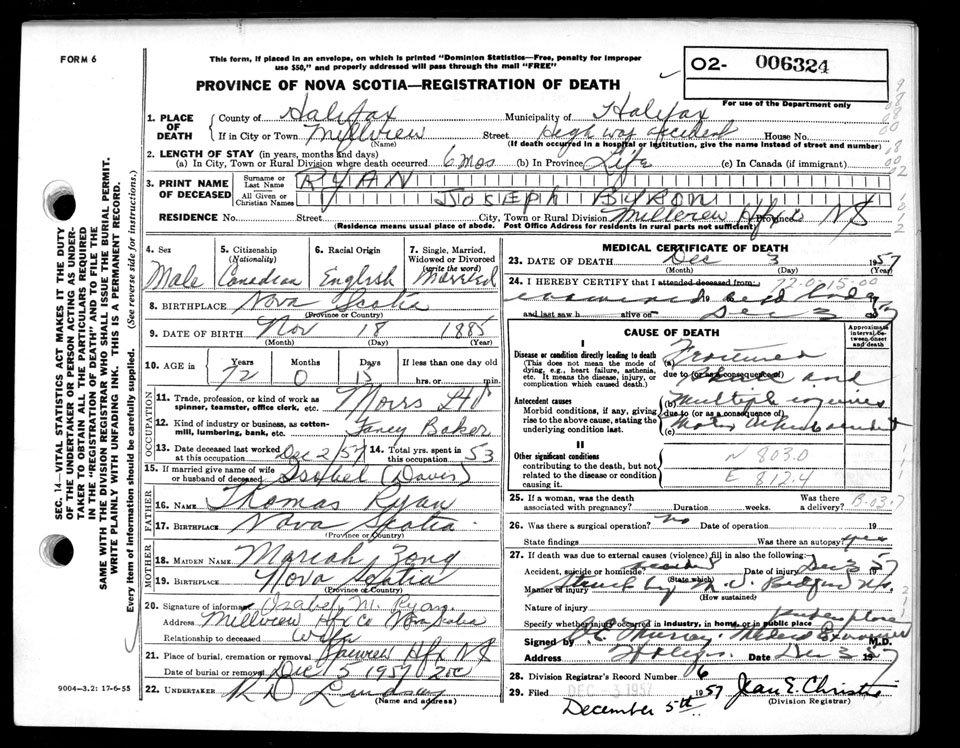 FORM 6
This form, if placed in an envelope, on which is printed "Dominion Statistics—Free, penalty for improper
use $50," and properly addressed will pass through the mail "FREE"
PROVINCE OF NOVA SCOTIA—REGISTRATION OF DEATH
O2- 006324
For use of the Department only
1. PLACE OF DEATH
County of Halifax Municipality of Halifax
If in City or Town Millview Street Highway accident House No.
(Name) (If death occurred in a hospital or institution, give the name instead of street and number)
2. LENGTH OF STAY (in years, months and days)
(a) In City, Town or Rural Division where death occurred 6 mos (b) In Province Life (c) In Canada (if immigrant)
3. PRINT NAME OF DECEASED
Surname or Last Name RYAN
All Given or Christian Names JOSEPH BYRON
RESIDENCE No. Street City, Town or Rural Division Millview Hfx Province NS
(Residence means usual place of abode. Post Office Address for residents in rural parts not sufficient)
4. Sex Male
5. Citizenship (Nationality) Canadian
6. Racial Origin English
7. Single, Married, Widowed or Divorced (write the word) Married
8. BIRTHPLACE Nova Scotia
(Province or Country)
9. DATE OF BIRTH Nov 18 1885
(Month) (Day) (Year)
10. AGE in Years Months Days If less than one day old
72 0 15 hrs. or min.
OCCUPATION
11. Trade, profession, or kind of work as spinner, teamster, office clerk, etc.
12. Kind of industry or business, as cotton-mill, lumbering, bank, etc. Fancy Baker
13. Date deceased last worked at this occupation Dec 2/57 14. Total yrs. spent in this occupation 53
15. If married give name of wife or husband of deceased (Davis)
FATHER
16. NAME Thomas Ryan
17. BIRTHPLACE Nova Scotia
(Province or Country)
MOTHER
18. MAIDEN NAME Mariah Zong
19. BIRTHPLACE Nova Scotia
(Province or Country)
20. Signature of informant Isabel M. Ryan
Address Millview Hfx Co Nova Scotia
Relationship to deceased wife
21. Place of burial, cremation or removal Hfx NS
Date of burial or removal Dec 5 1957
22. UNDERTAKER R D Lindsay
(Name and address)
9004-3.2: 17-6-55
MEDICAL CERTIFICATE OF DEATH
23. DATE OF DEATH Dec 3 1957
(Month) (Day) (Year)
24. I HEREBY CERTIFY that I attended deceased from:
examined dead body
and last saw h alive on Dec 3 57
CAUSE OF DEATH
Approximate interval between onset and death
I
Disease or condition directly leading to death
(This does not mean the mode of dying, e.g., heart failure, asthenia, etc. It means the disease, injury, or complication which caused death.)
(a) Fractured
due to (or as a consequence of)
and
Antecedent causes
Morbid conditions, if any, giving rise to the above cause, stating the underlying condition last.
(b) multiple injuries
due to (or as a consequence of)
(c) Motor accident
II
Other significant conditions
contributing to the death, but not related to the disease or condition causing it.
N 803.0
E 812.4
25. If a woman, was the death associated with pregnancy? Duration weeks. Was there a delivery?
26. Was there a surgical operation? no Date of operation 19
State findings Was there an autopsy? yes
27. If death was due to external causes (violence) fill in also the following:
Accident, suicide or homicide accident Date of injury Dec 3 57
(State which)
Manner of injury Struck by M. V. Bedford
(How sustained)
Nature of injury
Specify whether injury occurred in industry, in home, or in public place Public place
Signed by Murray Medical Examiner M.D.
Address Halifax Date Dec 3 1957
28. Division Registrar's Record Number 6
29. Filed DEC 3 1957 1957 Jean E. Christie
December 5th (Division Registrar)
SEC. 14—VITAL STATISTICS ACT MAKES IT THE DUTY
OF THE UNDERTAKER OR PERSON ACTING AS UNDER-
TAKER TO OBTAIN ALL THE PARTICULARS REQUIRED
IN THE "REGISTRATION OF DEATH" AND TO FILE THE
SAME WITH THE DIVISION REGISTRAR WHO SHALL ISSUE THE BURIAL PERMIT.
WRITE PLAINLY WITH UNFADING INK. THIS IS A PERMANENT RECORD.
Every item of information should be carefully supplied. (See reverse side for instructions.)